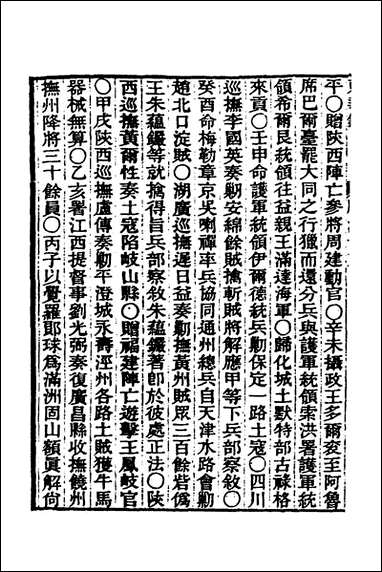 平○贈陝西陣亡參將周建勳官○辛未攝政王多爾袞至阿魯
席巴爾臺罷大同之行獵而還分兵與護軍統領索洪署護軍統
領希爾艮統領往益親王滿達海軍○歸化城土默特部古祿格
來貢○壬申命護軍統領伊爾德統兵勦保定一路土寇○四川
巡撫李國英奏勦安綿餘賊擒斬賊將解應甲等下兵部察敘○
癸酉命梅勒章京吳喇禪率兵協同通州總兵自天津水路會勦
趙北口淀賊○湖廣巡撫遲日益奏勦撫黃州賊眾三百餘砦僞
王朱蘊鑨等就擒得旨兵部察敘朱蘊鑨著卽於彼處正法○陝
西巡撫黃爾性奏土寇陷岐山縣○贈福建陣亡遊擊王鳳岐官
○甲戌陝西巡撫盧傳奏勦平澄城永壽涇州各路土賊獲牛馬
器械無算○乙亥署江西提督事劉光弼奏復廣昌縣收撫饒州
撫州降將三十餘員○丙子以覺羅郞球爲滿洲固山額眞解尙